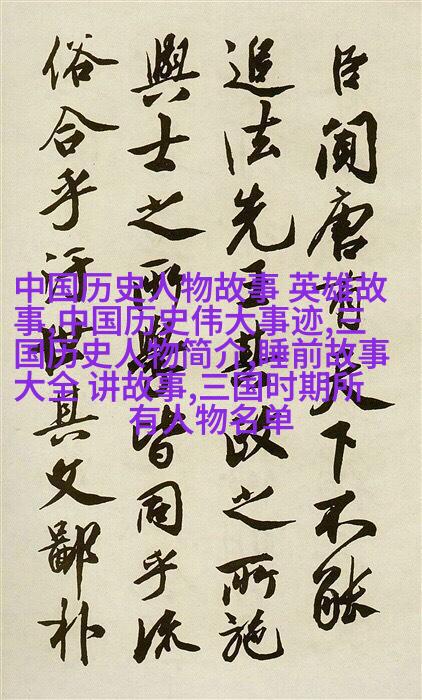 臣聞唐有天下不能
追法先王其政之所施
與士之所皆同乎流
俗合乎汙世其文鄙朴
中国历史人物故事 英雄故
事,中国历史伟大事迹,三
国历史人物简介,睡前故事
大全 讲故事,三国时期所
有人物名单